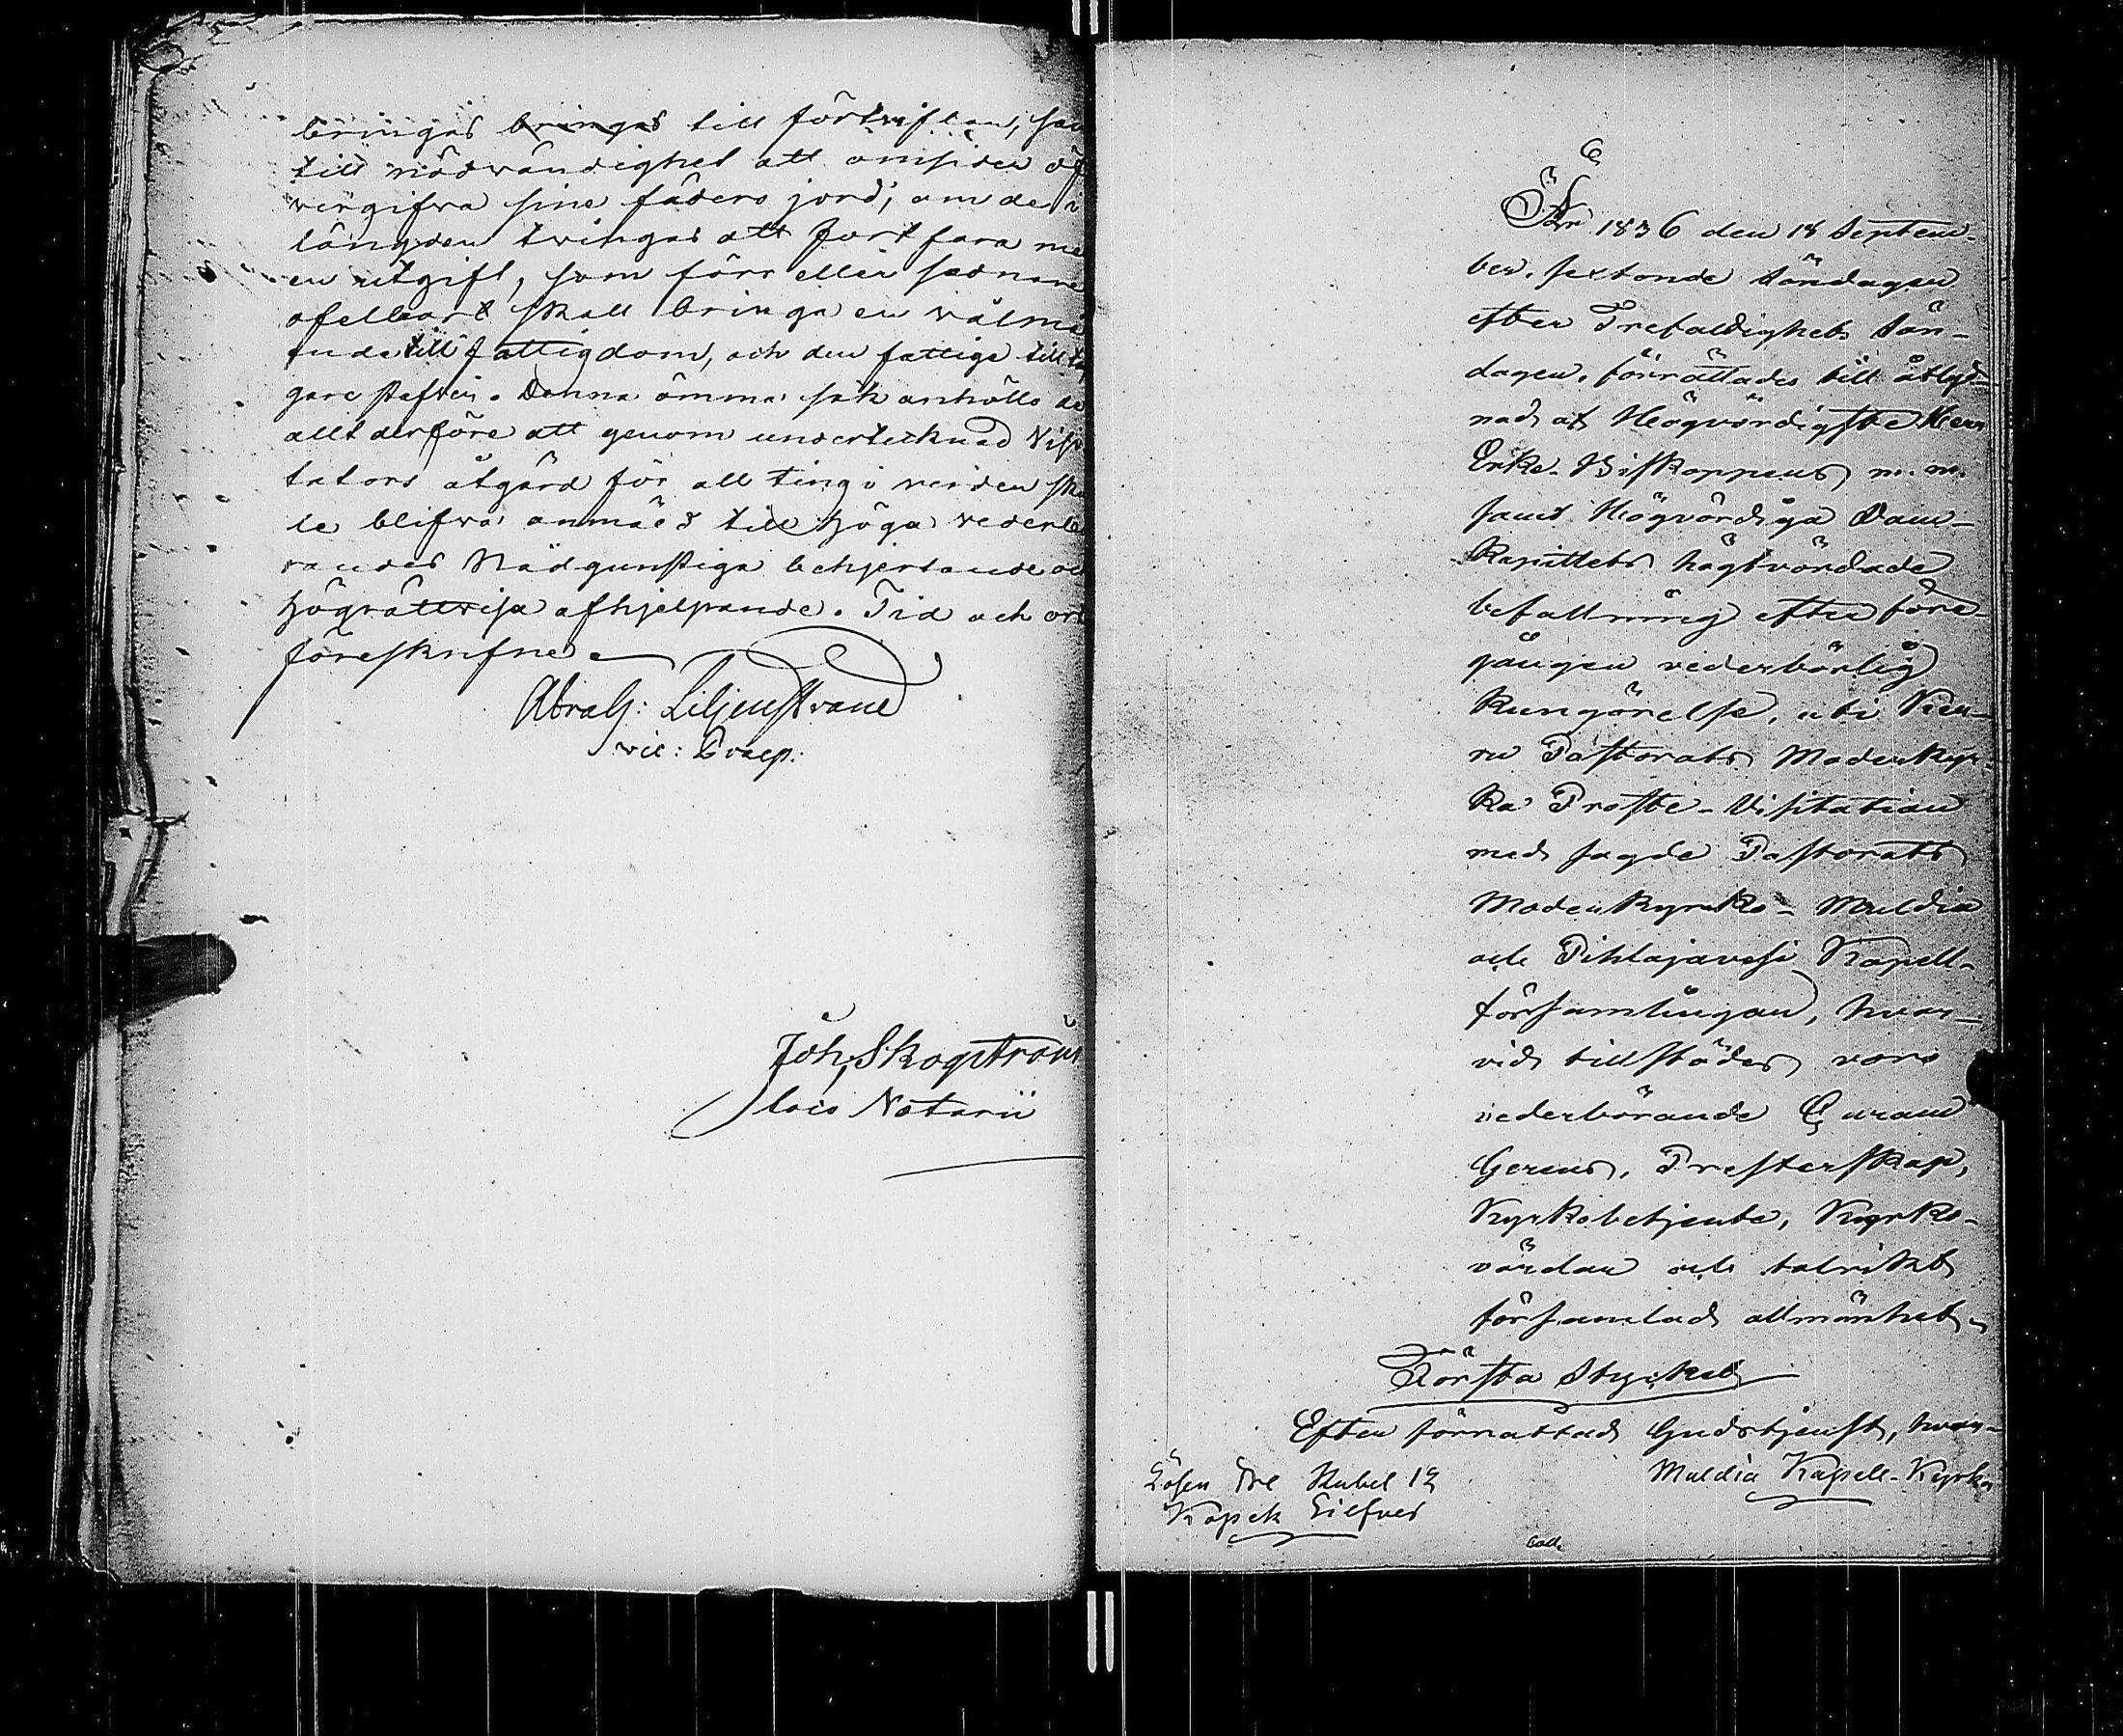 bringas bringas till förtviflan, sam
till nödvändighet att omsider öf
vergifva sine fäders jord, om de i
längden tvingas att fortfara me
en utgift, som förr eller sednare
ofelbart skall bringa en välmå
ende till fattigdom, och den fattige till
gare stafven. Denna ömma sak anhölls de
allt derföre att genom undertecknad Visi
tators åtgärd för all ting i verlden sku
le blifva anmäld till Höga vederbö
randes Nådgunstiga behjertande oc
högrättvisa afhjelpande. Tid och ort
föreskrifne
Abrah: Liljenstrand
vic: Praep:
Joh. Skogström
loco Notarii
6
År 1836 den 18 Septem-
ber, sextonde Söndagen
efter Trefaldighets Sön-
dagen, förrättades till åtlyd-
nad af Högvördigste Herr
Erke-Biskoppens m.m.
samt Högvördiga Dom-
Kapitlets högtvördade
befallning efter före-
gången vederbörlig
Kungörelse, uti Keu-
ru Pastorats Moderkyr-
ka Proste-Visitation
med sagde Pastorats
Moderkyrko- Muldia
och Pihlajavesi Kapell-
församlingar, hvar-
vid tillstädes voro
vederbörande Curam
Gerens, Presterskap,
Kyrkobetjente, Kyrko-
värdar och talrikt
församlad allmänhet.
Första Stycket
Efter förrättad Gudstjenst, hvar-
Muldia Kapell-Kyrka
Lösen Tre Rubel 12
Kopek Silfver
Coll.